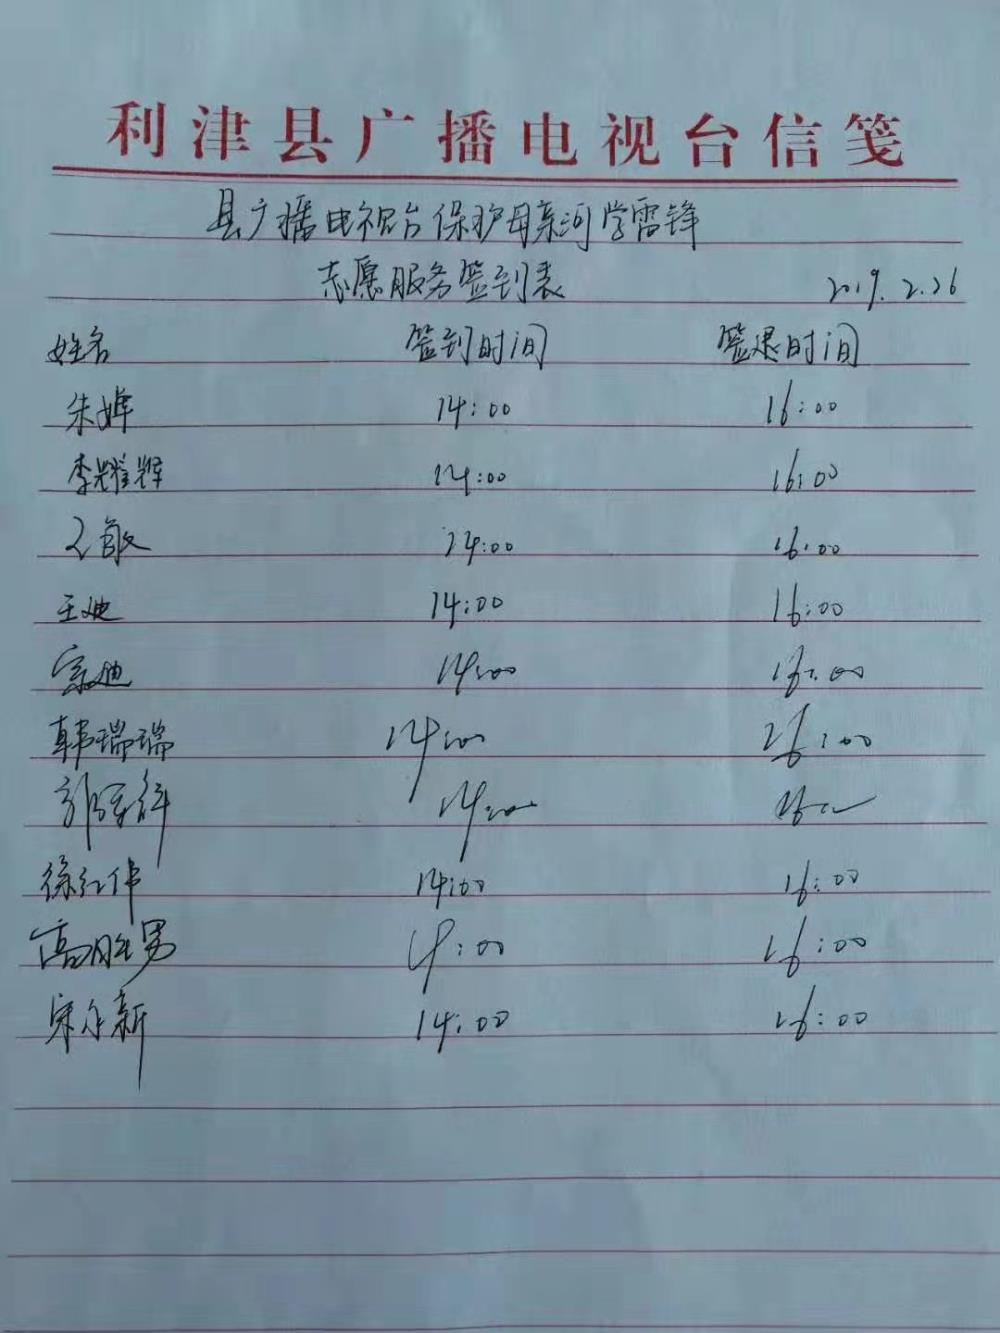 利津县广播电视台信笺
县广播电视台保护母亲河学雷锋
志愿服务签到表 2019.2.26
姓名 签到时间 签退时间
朱婷 14:00 16:00
李耀辉 14:00 16:00
敏 14:00 16:00
王迪 14:00 16:00
宗迪 14:00 16:00
韩瑞瑞 14:00 16:00
14:00
徐红伟 14:00 16:00
高胜男 14:00 16:00
新 14:00 16:00